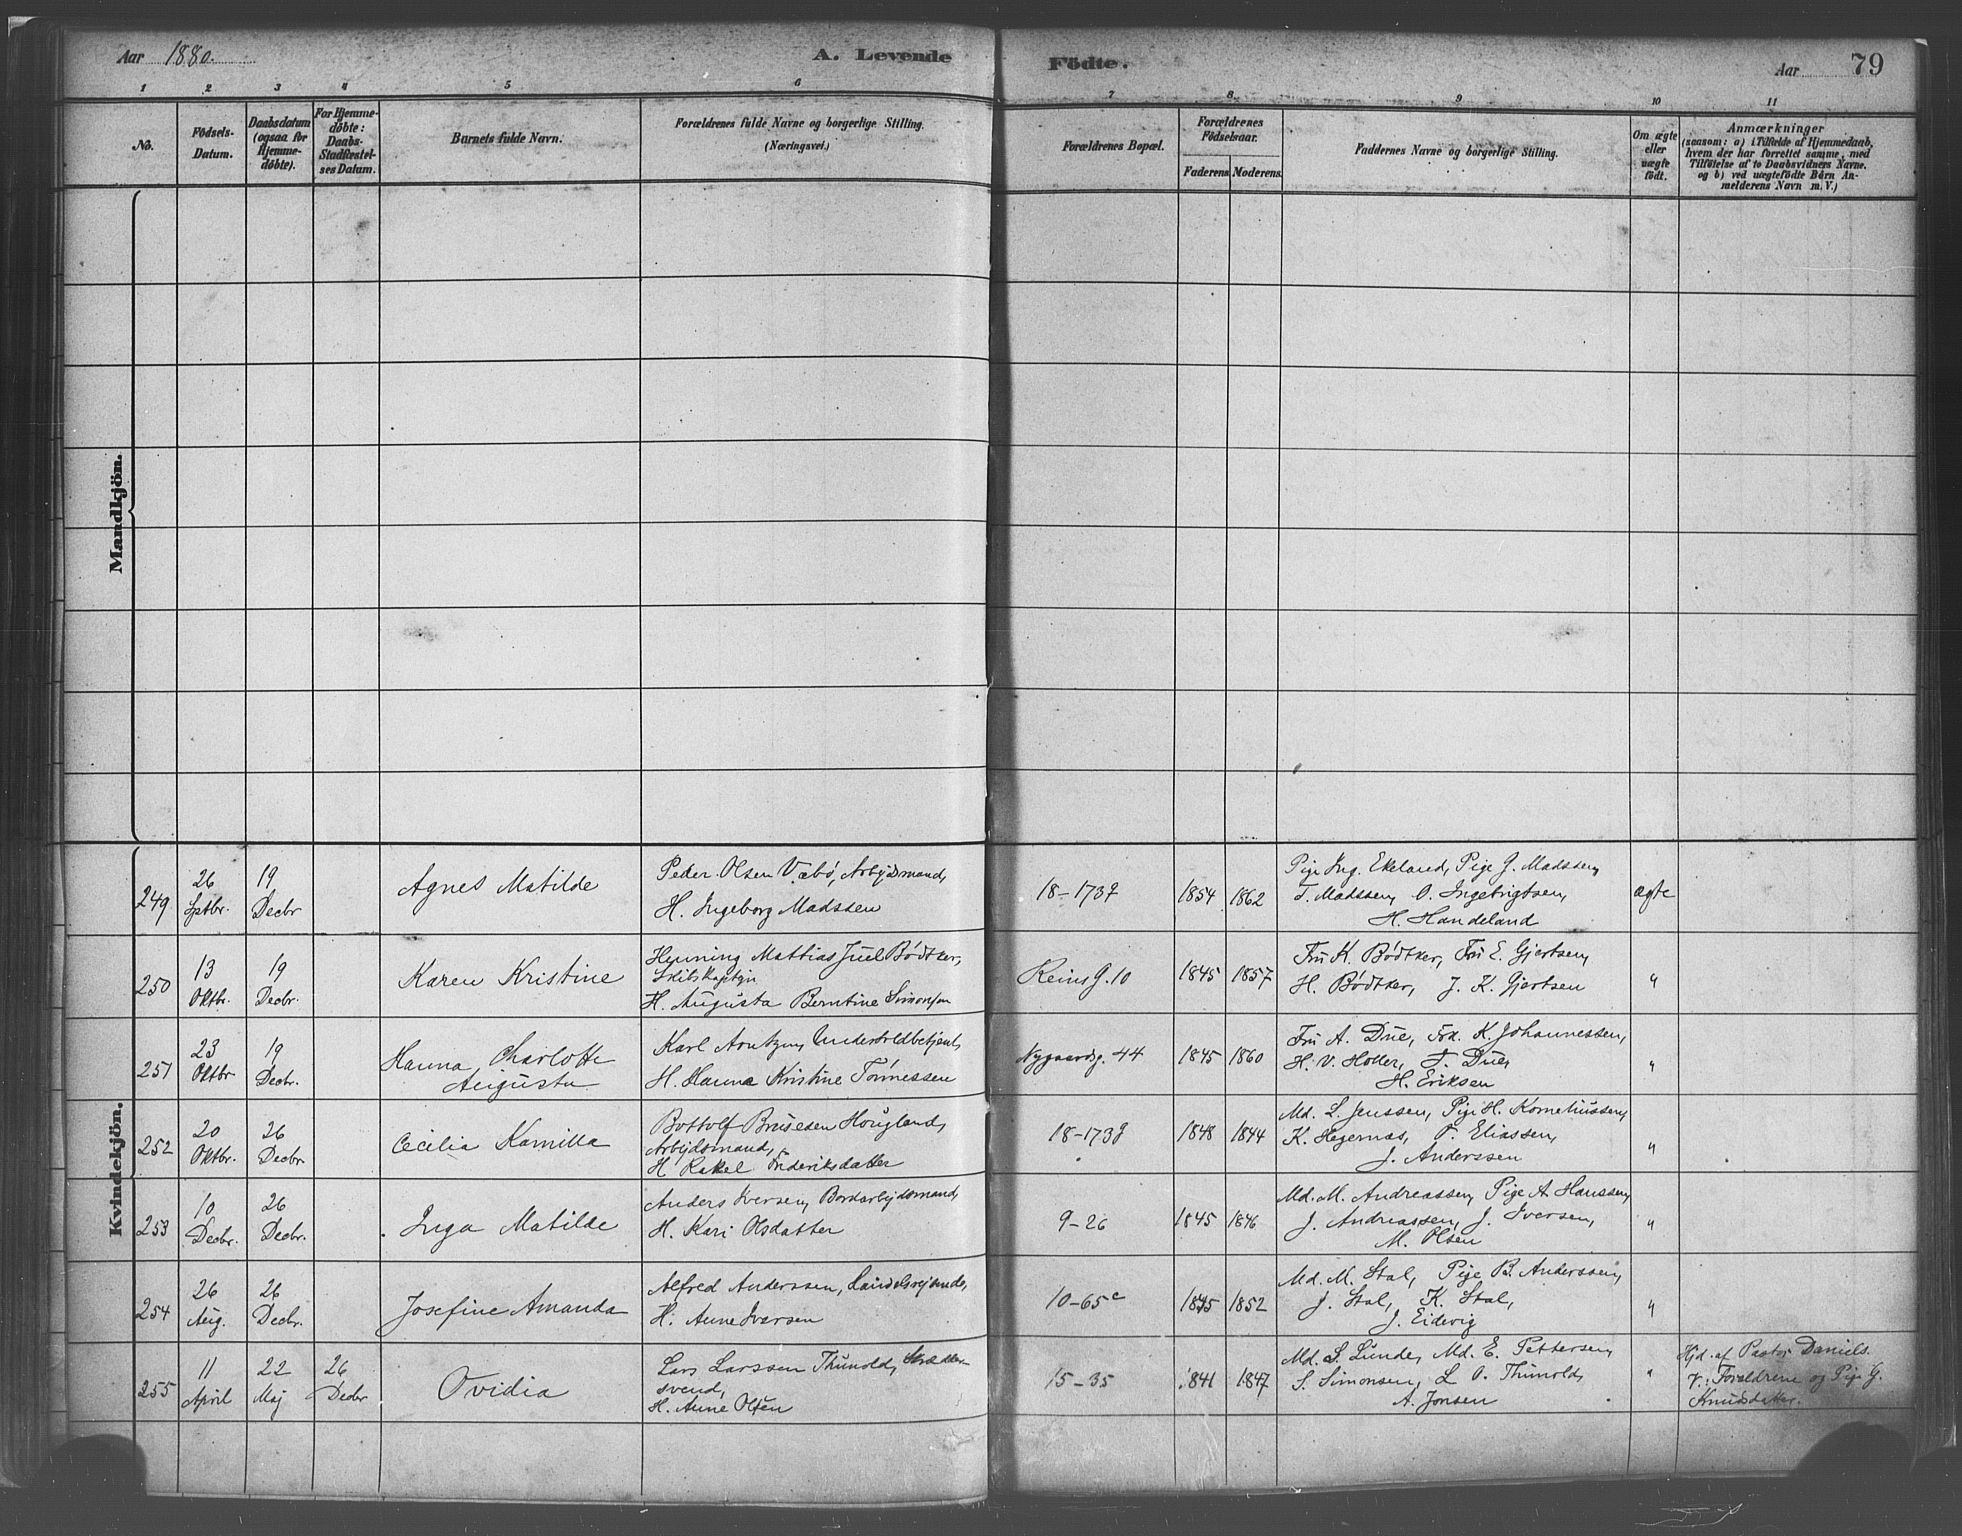 Aar 1880.
A. Levende Födte.
Aar
79
1 2 3 4 5 6 7 8 9 10 11
No.
Födsels-Datum.
Daabsdatum (ogsaa for Hjemmedöbte).
For Hjemmedöbte: Daabs-Stadfæstelses Datum.
Barnets fulde Navn.
Forældrenes fulde Navne og borgerlige Stilling.
(Næringsvei.)
Forældrenes Bopæl.
Forældrenes Födselsaar.
Faderens. Moderens.
Faddernes Navne og borgerlige Stilling.
Om ægte eller uægte födt.
Anmærkninger
(saasom: a) i Tilfælde af Hjemmedaab,
hvem der har forrettet samme, med
Tilföielse af to Daabsvidners Navne.
og b) ved uægtefödte Börn An-
melderens Navn m. V.)
Mandkjön.
Kvindekjön.
249 26 Sptbr. 19 Decbr Agnes Matilde
Peder Olsen Vabø, Arbejdsmand,
H. Ingeborg Madssen
18-173 1854 1862
Pige Ing. Ekeland, Pige J. Madssen,
T. Madssen, O. Ingebrigtsen,
H. Handeland
ægte
250 13 Oktbr. 19 Decbr. Karen Kristine
Henning Mattias Juel Bødtker,
Skibskaptejn
H. Augusta Berntine Simonsen
Reins G. 10 1845 1857
Fru K. Bødtker, Fru E. Gjertsen,
H. Bødtker, J. K. Gjertsen
"
251 23 Oktbr 19 Decbr. Hanna Charlotte
Augusta
Karl Arntzen, Undertoldbetjent,
H. Hanna Kristine Tönnessen
Nygaardsg. 44 1845 1860
Fru A. Due, K. Johannessen,
H. V. Holler, F. Due,
H. Eriksen
"
252 20 Oktbr. 26 Decbr Cecilia Kamilla
Bottolf Hougland,
Arbejdsmand,
H. Rakel Frideriksdatter
18-173 1848 1844
Md. L. Jenssen, Pige H. Korneliussen,
K. Hegernæs, Eliassen,
J. Anderssen
"
253 10 Decbr. 26 Decbr. Inga Matilde
Anders Iversen, Bordarbejdsmand,
H. Kari Olsdatter
9-26 1845 1846
Md. M. Andreassen, Pige A. Hanssen,
J. Andreassen, J. Iversen,
M. Olsen
"
254 26 Aug. 26 Decbr. Josefine Amanda
Alfred Anderssen, Handelsrejsende,
H. Anne Iversen
10-65c 1845 1852
Md. M. Stal, Pige B. Anderssen,
J. Stal, K. Stal,
J. Eidevig
"
255 11 April 22 Maj 26 Decbr Ovidia
Lars Larssen Thunold, Skrædder-
svend,
H. Anne Olsen
15-35 1841 1847
Md. S. Lunde, Md. E. Pettersen,
S. Simonsen, L. O. Thunold,
A. Jonsen
"
Hjd. af Pastor Daniels.
V.: Forældrene og Pige G.
Knudsdatter.